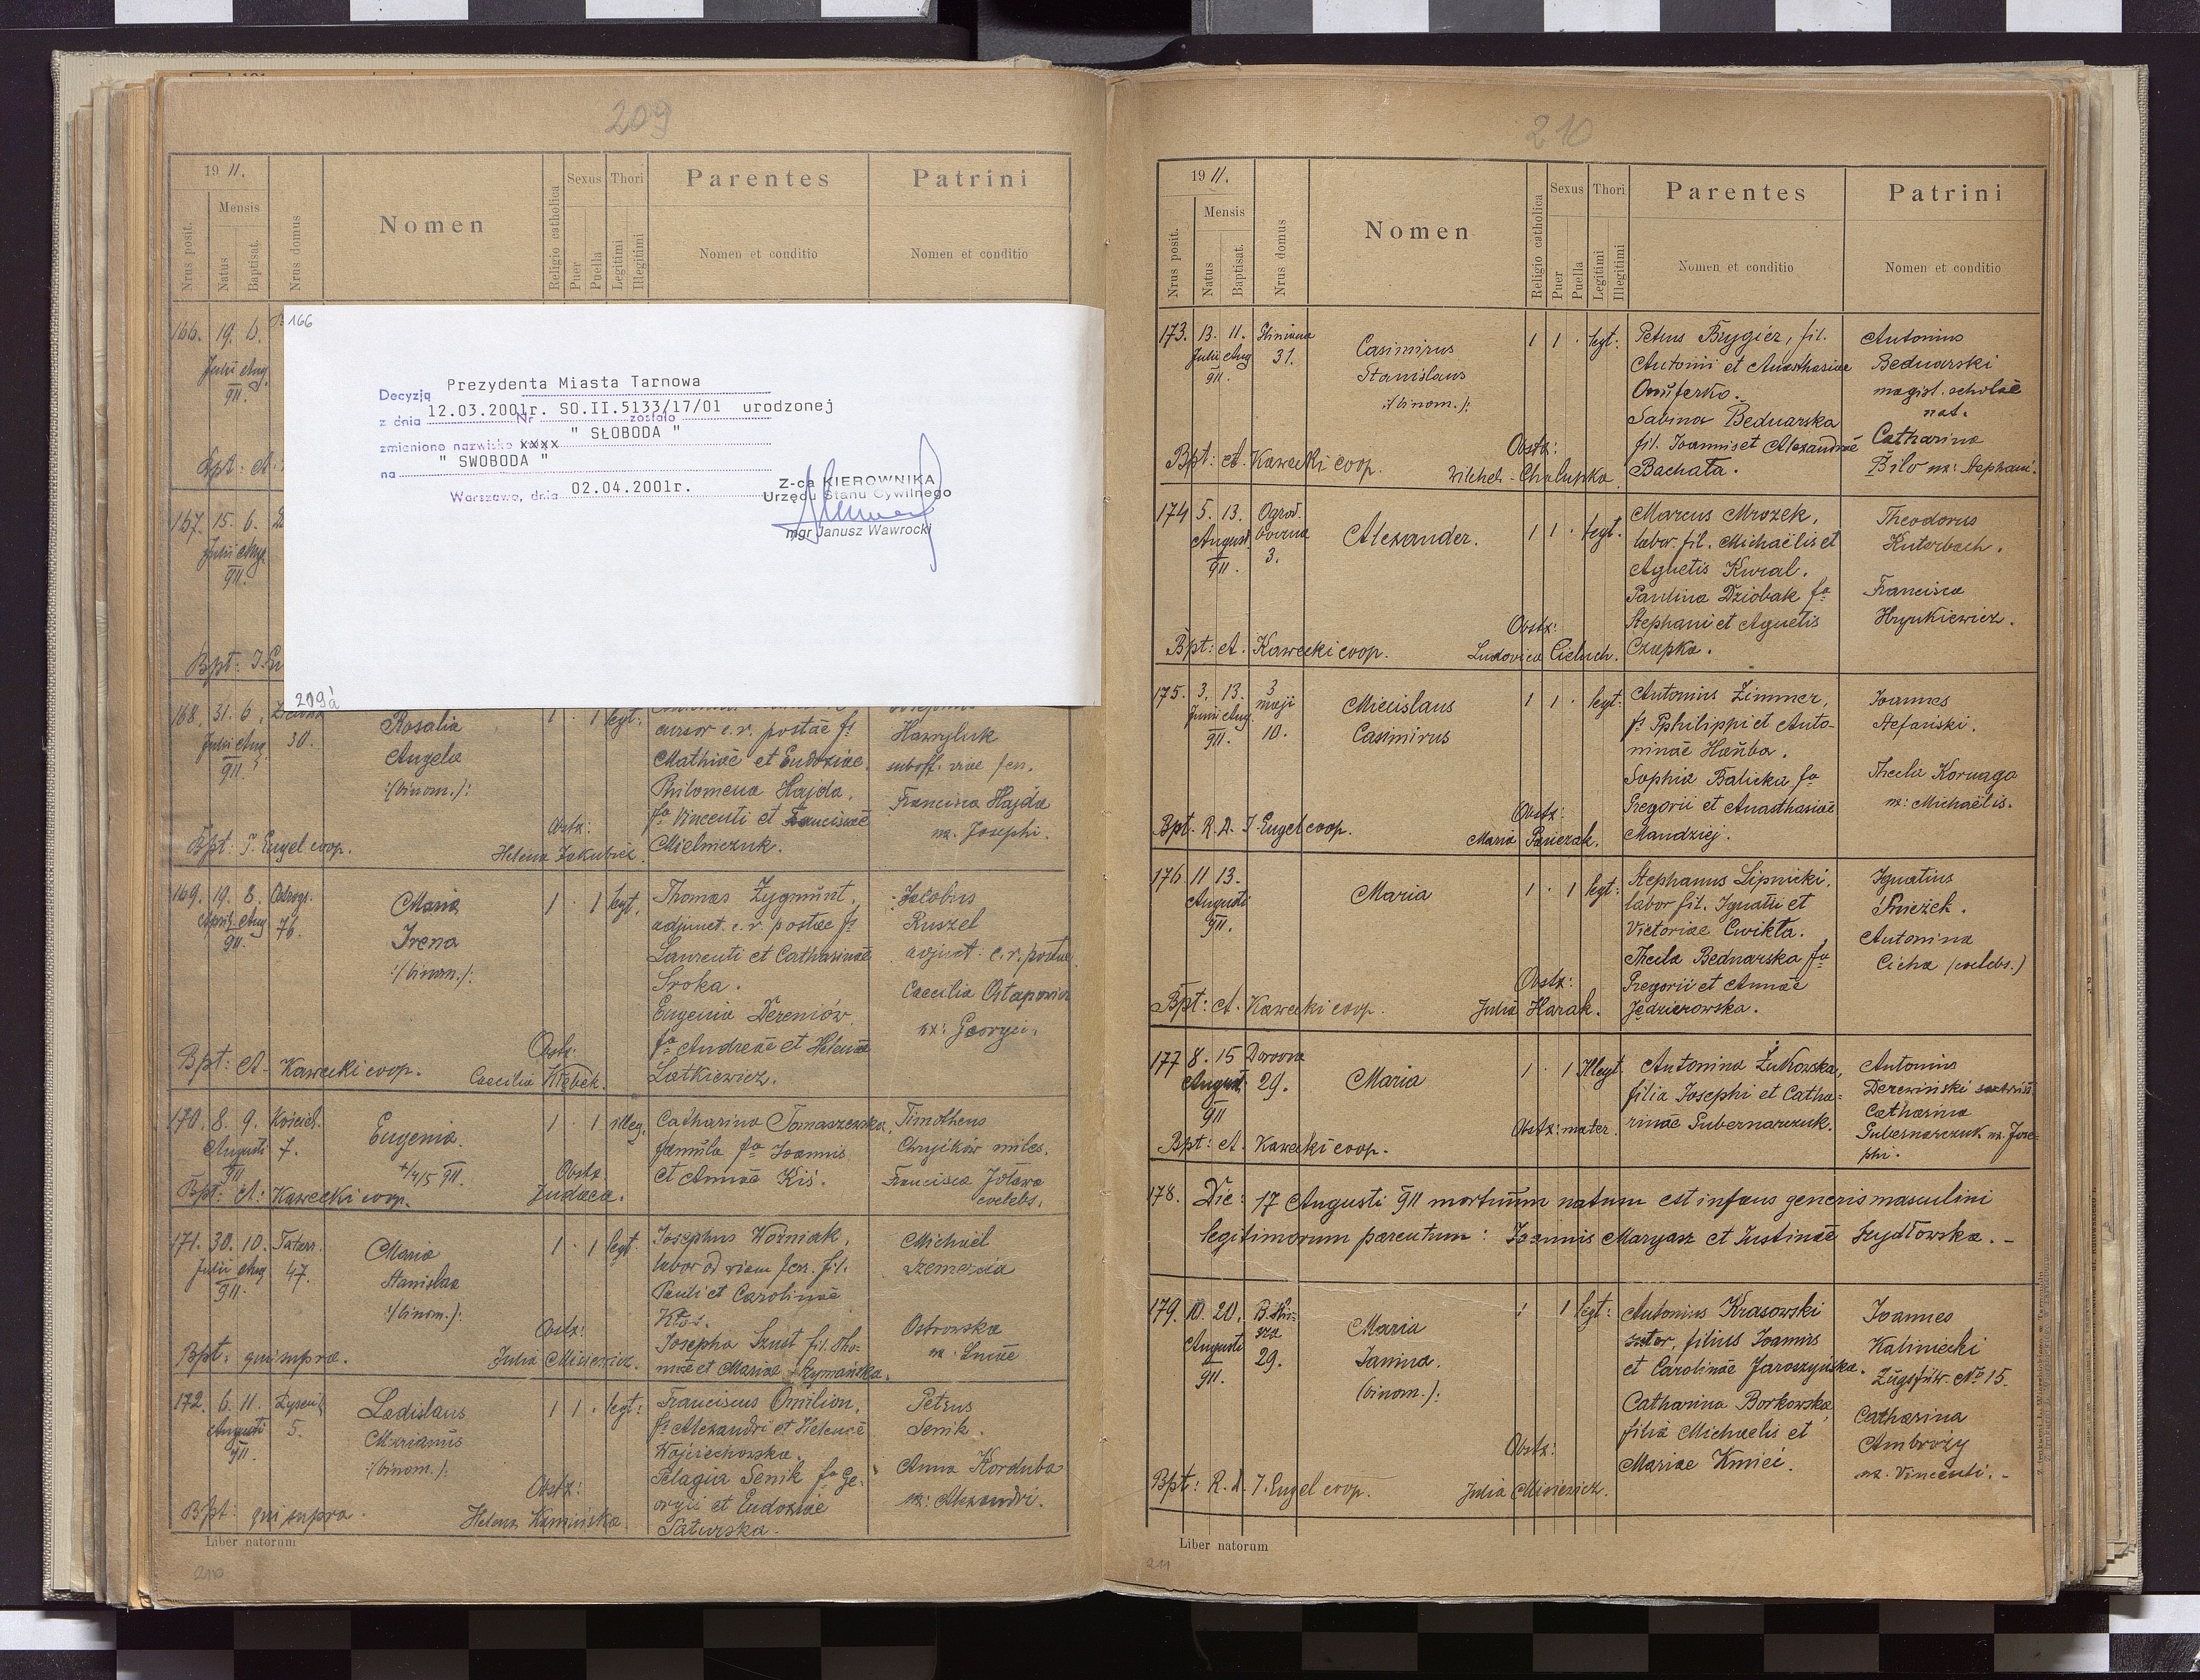 209
19 11.
Nrus posit.
Mensis
Natus
Baptisat.
Nrus domus
Nomen
Religio catholica
Sexus
Puer
Puella
Thori
Legitimi
Illegitimi
Parentes
Nomen et conditio
Patrini
Nomen et conditio
166. 19. 6.
Julii Aug.
911.
166
Decyzją Prezydenta Miasta Tarnowa
z dnia 12.03.2001r. Nr SO.II.5133/17/01 zostało urodzonej
zmienione nazwisko xxxx " SŁOBODA "
na " SWOBODA "
Warszawa, dnia 02.04.2001r.
Z-ca KIEROWNIKA
Urzędu Stanu Cywilnego
mgr Janusz Wawrocki
209a
167. 15. 6.
Julii Aug.
911.
168. 31. 6.
Julii Aug. 30.
911.
Rosalia
Angela
:/binom./:
1 · 1 legt:
cursor c. r. postae fs
Mathiae et Eudoxiae.
Philomena Hajda,
fa Vincenti et Franciscae
Mielniczuk.
Hawryluk
suboff. viae fer.
Francisca Hajda
ux. Josephi.
Obstx:
Helena Jakubicz.
Bpt: J. Engel coop.
169. 19. 8.
April. Aug. 76.
911.
Maria
Irena
:/binom./:
1 · 1 legt.
Thomas Zygmunt,
adjunct. c. r. postae fs
Laurenti et Catharinae
Sroka.
Eugenia Dereniów
fa Andreae et Helenae
Latkiewicz.
Jacobus
Ruszel
adjunct: c. r. postae
Caecilia Ostapowicz
ux: Georgii.
Obstx:
Caecilia Kłębek.
Bpt: A. Kawecki coop.
170. 8. 9.
Augusti 7.
911
Eugenia.
1 · 1 illeg.
Catharina Tomaszewska,
famula fa Joannis
et Annae Kiś.
Timotheus
Chryików miles.
Francisca
coelebs.
Obstx
Judaea.
Bpt: A: Kawecki coop.
171. 30. 10. Tatars.
Julii Aug. 47.
911.
Maria
Stanislaa
:/binom./:
1 · 1 legt.
Josephus Woźniak,
labor ad viam ferr. fil.
Pauli et Carolinae
Kłos.
Josepha Szust fil. Tho-
mae et Mariae Szymańska.
Michael
Szemerda
Ostrowska
ux. Lucae
Obstx:
Julia Misiewicz.
Bpt: qui supra.
172. 6. 11.
Augusti 5.
911.
Ladislaus
Marianus
:/binom./:
1 1 · legt:
Franciscus Omilion,
fs Alexandri et Helenae
Wojciechowska.
Pelagia Senik fa Ge-
orgii et Eudoxiae
Saturska.
Petrus
Senik.
Anna Korduba
ux: Alexandri.
Obstx:
Helena Kamińska
Bpt: qui supra.
Liber natorum
210
210
19 11.
Nrus posit.
Mensis
Natus
Baptisat.
Nrus domus
Nomen
Religio catholica
Sexus
Puer
Puella
Thori
Legitimi
Illegitimi
Parentes
Nomen et conditio
Patrini
Nomen et conditio
173. 13. 11.
Julii Aug 31.
911.
Casimirus
Stanislaus
:/binom./:
1 1 · legt:
Petrus Brygier, fil.
Antonii et Anasthasiae
Onuferko.
Sabina Bednarska
fil. Joannis et Alexandrae
Bachata.
Antonius
Bednarski
magist. scholae
nat.
Catharina
Bilo ux: Stephani.
Obstx:
Chalupka.
Bpt: A. Kawecki coop.
174 5. 13. Ogrod.
August. 3.
911.
Alexander.
1 1 · legt.
Marcus Mrozek,
labor. fil. Michaëlis et
Agnetis Kural.
Paulina Dziobak fa
Stephani et Agnetis
Czapka.
Theodorus
Kuterbach.
Francisca
Hrynkiewicz.
Obstx:
Ludovica Cieluch.
Bpt: A. Kawecki coop.
175. 3. 13. 3
Junii Aug. maji
911. 10.
Miecislaus
Casimirus
1 1 · legt:
Antonius Zimmer,
fs Pphilippi et Anto-
ninae Hańba.
Sophia Balicka fa
Gregorii et Anasthasiae
Mandziej.
Joannes
Stefański.
Thecla Kornaga
ux: Michaëlis.
Obstx:
Maria Panczak.
Bpt. R. D. J. Engel coop.
176 11 13.
Augusti
911.
Maria
1 · 1 legt:
Stephanus Lipnicki,
labor fil. Ignatii et
Victoriae Cwikła.
Thecla Bednarska fa
Gregorii et Annae
Jędzierowska.
Ignatius
Śnieżek.
Antonina
Cicha (coelebs.)
Obstx:
Julia Harak.
Bpt: A. Kawecki coop.
177 8. 15
August. 29.
911
Maria
1 · 1 Illegt
Antonina Żukowska,
filia Josephi et Catha-
rinae Gubernarczuk.
Antonius
Derewiński
Catharina
Gubernarczuk ux. Jose-
phi.
Obstx: mater.
Bpt: A. Kawecki coop.
178. Die: 17 Augusti 911 mortuum natum est infans generis masculini
legitimorum parentum: Joannis Maryasz et Justinae Szydłowska. –
179. 10. 20.
Augusti 29.
911.
Maria
Janina.
(binom.):
1 · 1 legt:
Antonius Krasowski
sutor, filius Joannis
et Carolinae Jaroszyńska.
Catharina Borkowska
filia Michaelis et
Mariae Kmieć.
Joannes
Kaliniecki
Zugsfüw. No 15.
Catharina
Ambroży
ux. Vincenti. –
Obstx:
Julia Misiewicz.
Bpt: R. D. J. Engel coop.
Liber natorum
211